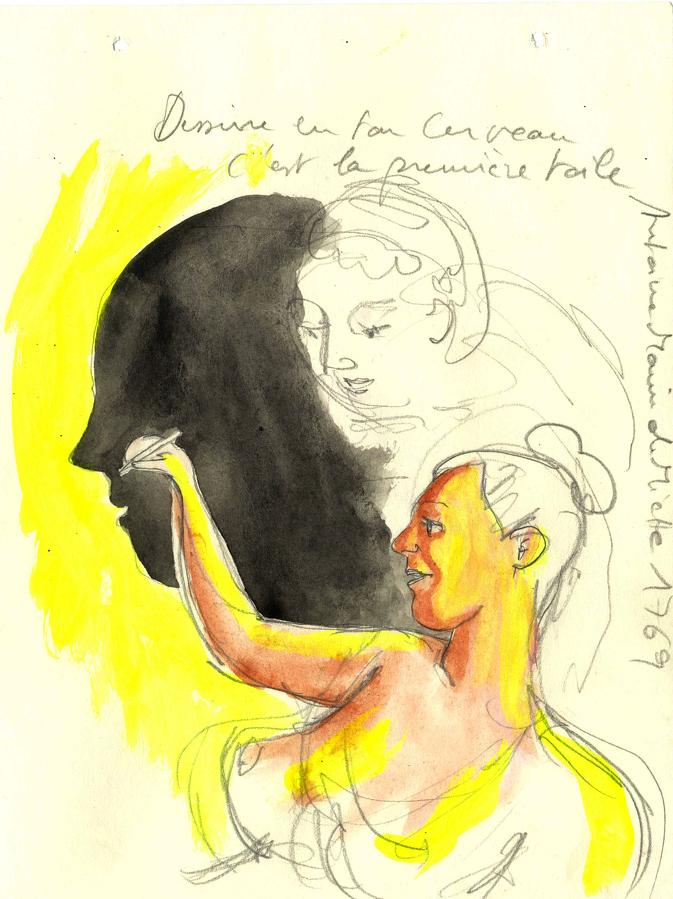 Dessine en ton Cerveau
c'est la première toile
Antoine Marin Lemierre 1769